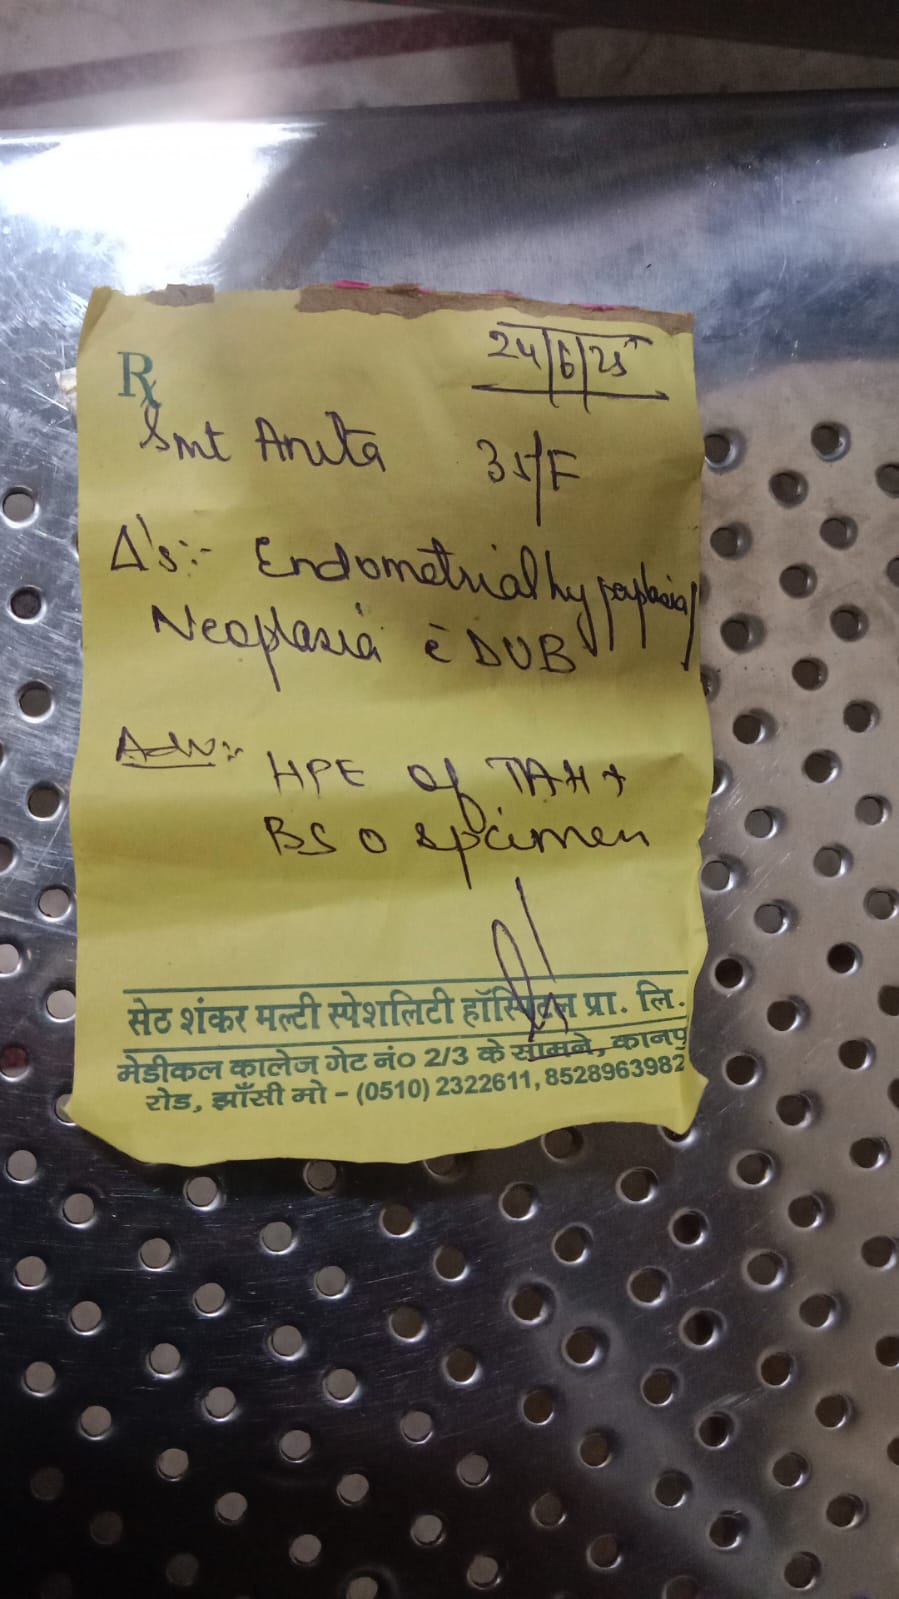 Rx
24/6/25
Smt Anita 35/F
Δ's:- Endometrial hyperplasia/
Neoplasia c̄ DUB
Adv:-
HPE of TAH +
BSO specimen
सेठ शंकर मल्टी स्पेशलिटी हॉस्पिटल प्रा. लि.
मेडीकल कालेज गेट नं० 2/3 के सामने, कानपु
रोड, झाँसी मो - (0510) 2322611, 8528963982